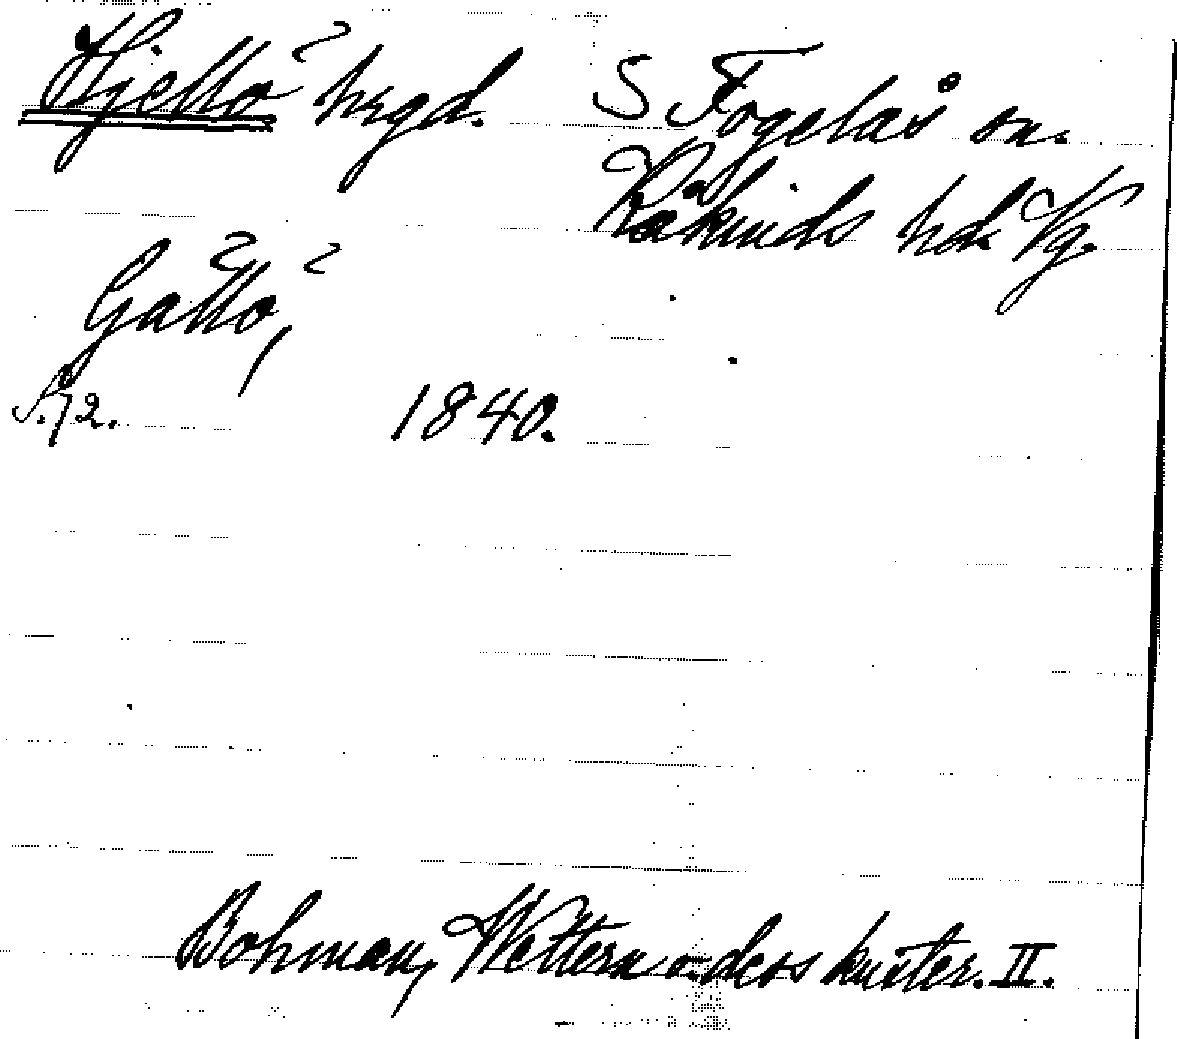 Hjellö hrgd. S Fogelås sn.
Kåkinds hd. Vg.
Gällö,
S. 72. 1840.
Bohman, Wettern o. dess kuster. II.